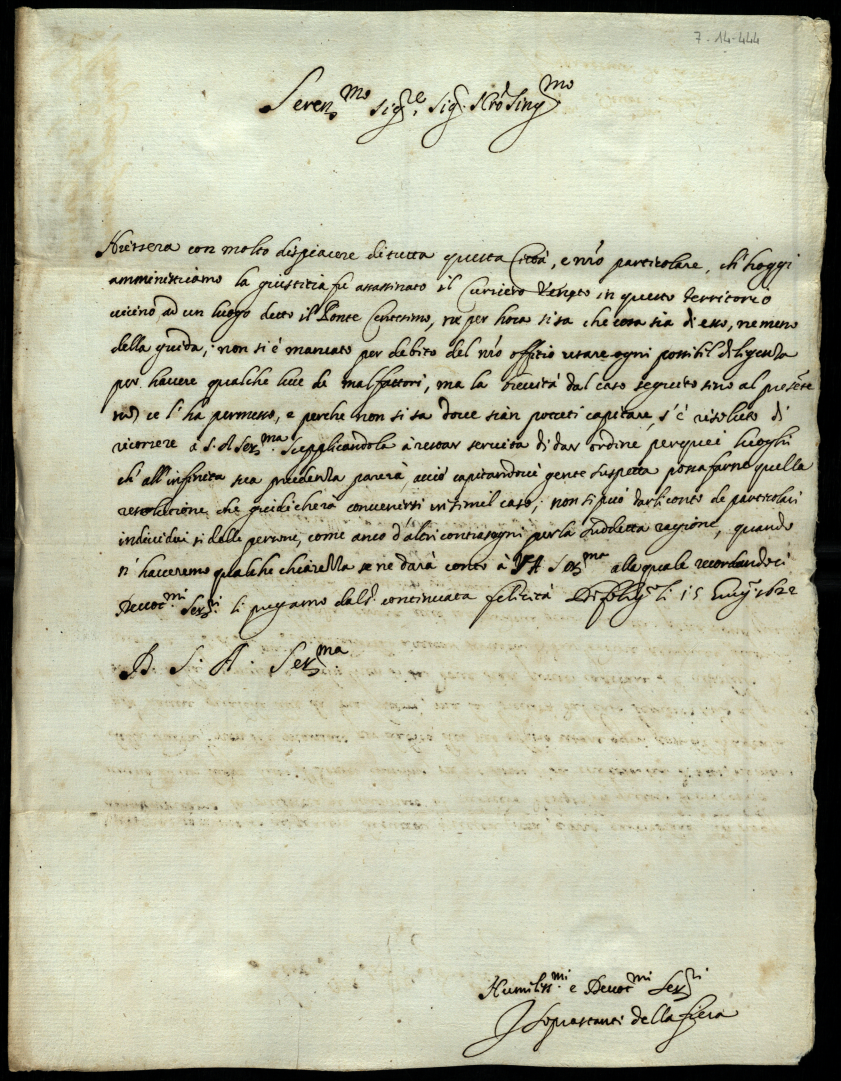 7-14-444
Seren.mo Sig.re Sig. N'ro Sing.mo
Hiersera con molto dispiacere di tutta questa Città, e n'ro particolare, ch'hoggi
amministriamo la giustitia fù assassinato il Curriero in questo Territorio
vicino ad un luogo detto il Ponte Centesimo, ne per hora si sa che cosa sia di esso, ne meno
della guida, non si è mancato per debito del n'ro offitio usare ogni possibil diligenza
per havere qualche luce de malfattori, ma la brevità dal caso seguito sino al presẽte
non ce l'hà permesso, e perche non si sa dove sian potuti capitare, s'è risoluto di
ricorrere à S. A Ser.ma supplicandola à restar servita di dar ordine per quei luoghi
ch'all'infinita sua prudenza parerà, acciò capitandovi gente suspetta possa farne quella
resolutione che giudicherà convenirsi in simil caso; non si può darli conto de particolari
individui si delle persone, come anco d'altri contrasegni per la sudetta ragione, quando
n'haveremo qualche chiarezza se ne darà conto à V A Ser.ma alla quale recordandoci
Devot.mi Ser.ri li pregamo dal S. continuata felicità Di folig.o li 15 1622
D. S. A. Ser.ma
Humiliss.mi e Devot.mi Ser.ri
I Soprastanti della fiera